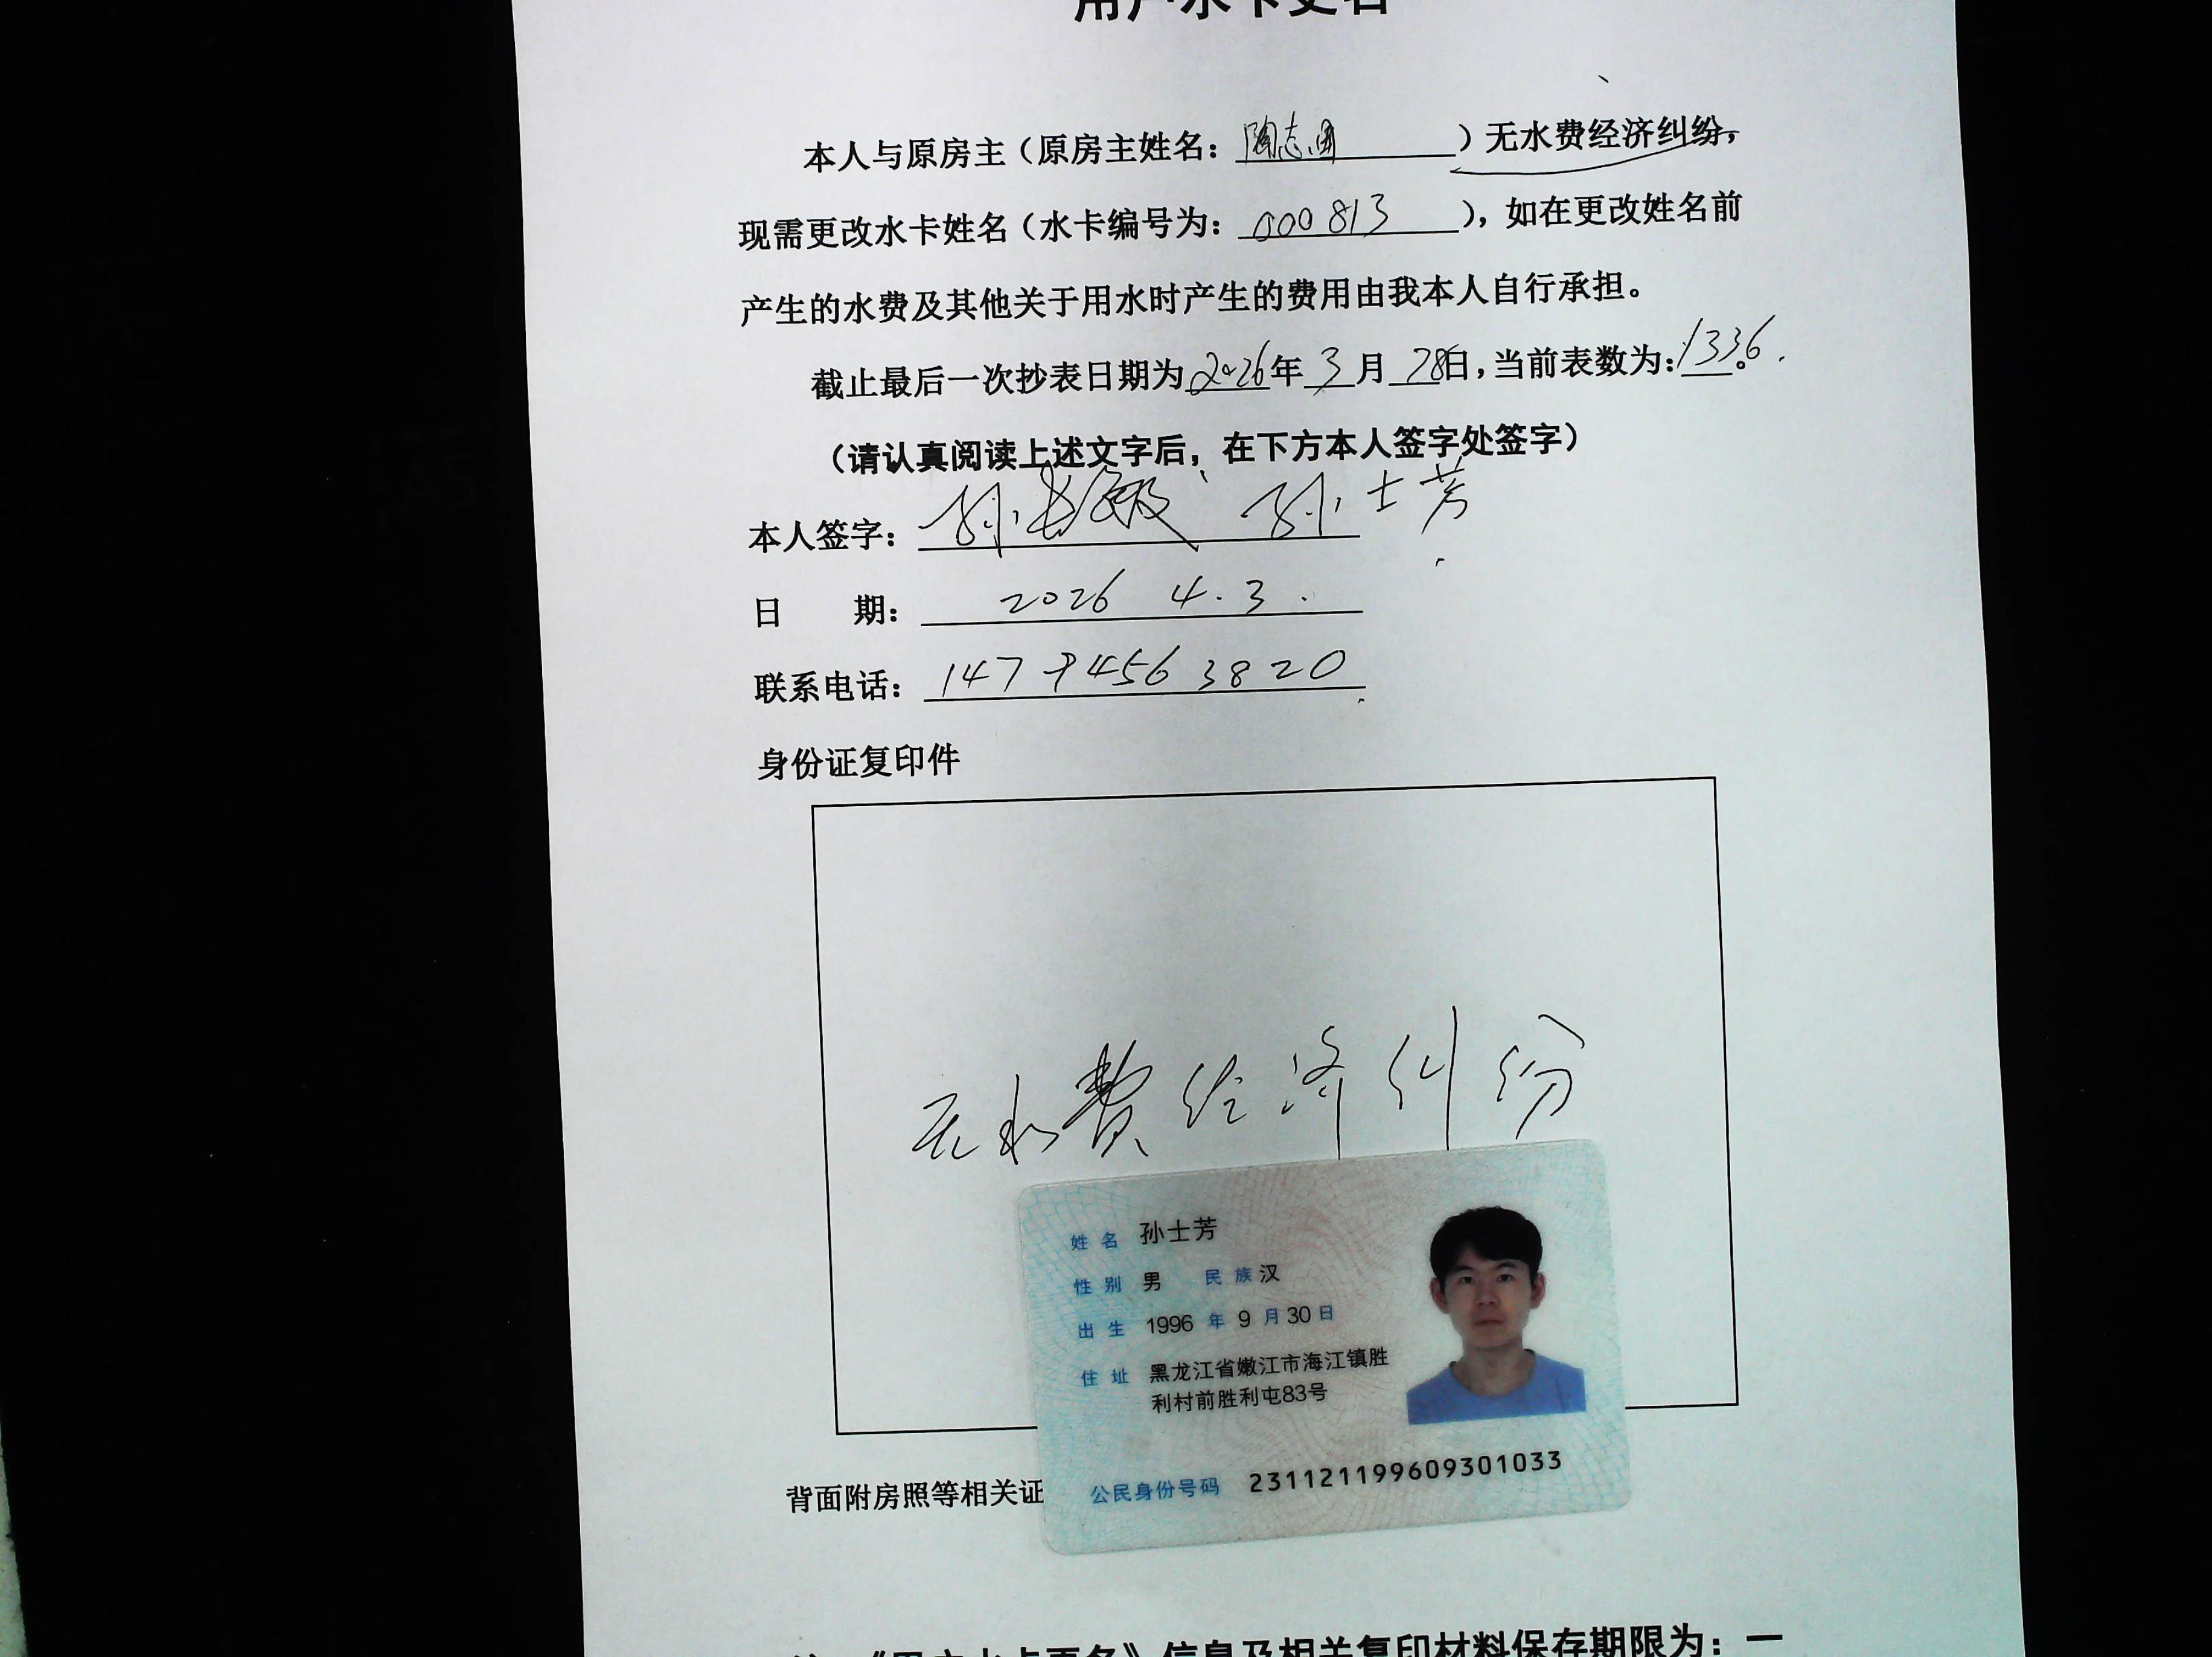 用户水卡更名
本人与原房主（原房主姓名：陶志国）无水费经济纠纷，
现需更改水卡姓名（水卡编号为：000813），如在更改姓名前
产生的水费及其他关于用水时产生的费用由我本人自行承担。
截止最后一次抄表日期为2026年3月28日，当前表数为：1336。
（请认真阅读上述文字后，在下方本人签字处签字）
本人签字：孙 孙士芳
日 期：2026 4.3.
联系电话：14794563820
身份证复印件
无水费经济纠纷
姓名 孙士芳
性别 男 民族 汉
出生 1996年9月30日
住址 黑龙江省嫩江市海江镇胜
利村前胜利屯83号
公民身份号码 231121199609301033
背面附房照等相关证
《用户水卡更名》信息及相关复印材料保存期限为：一